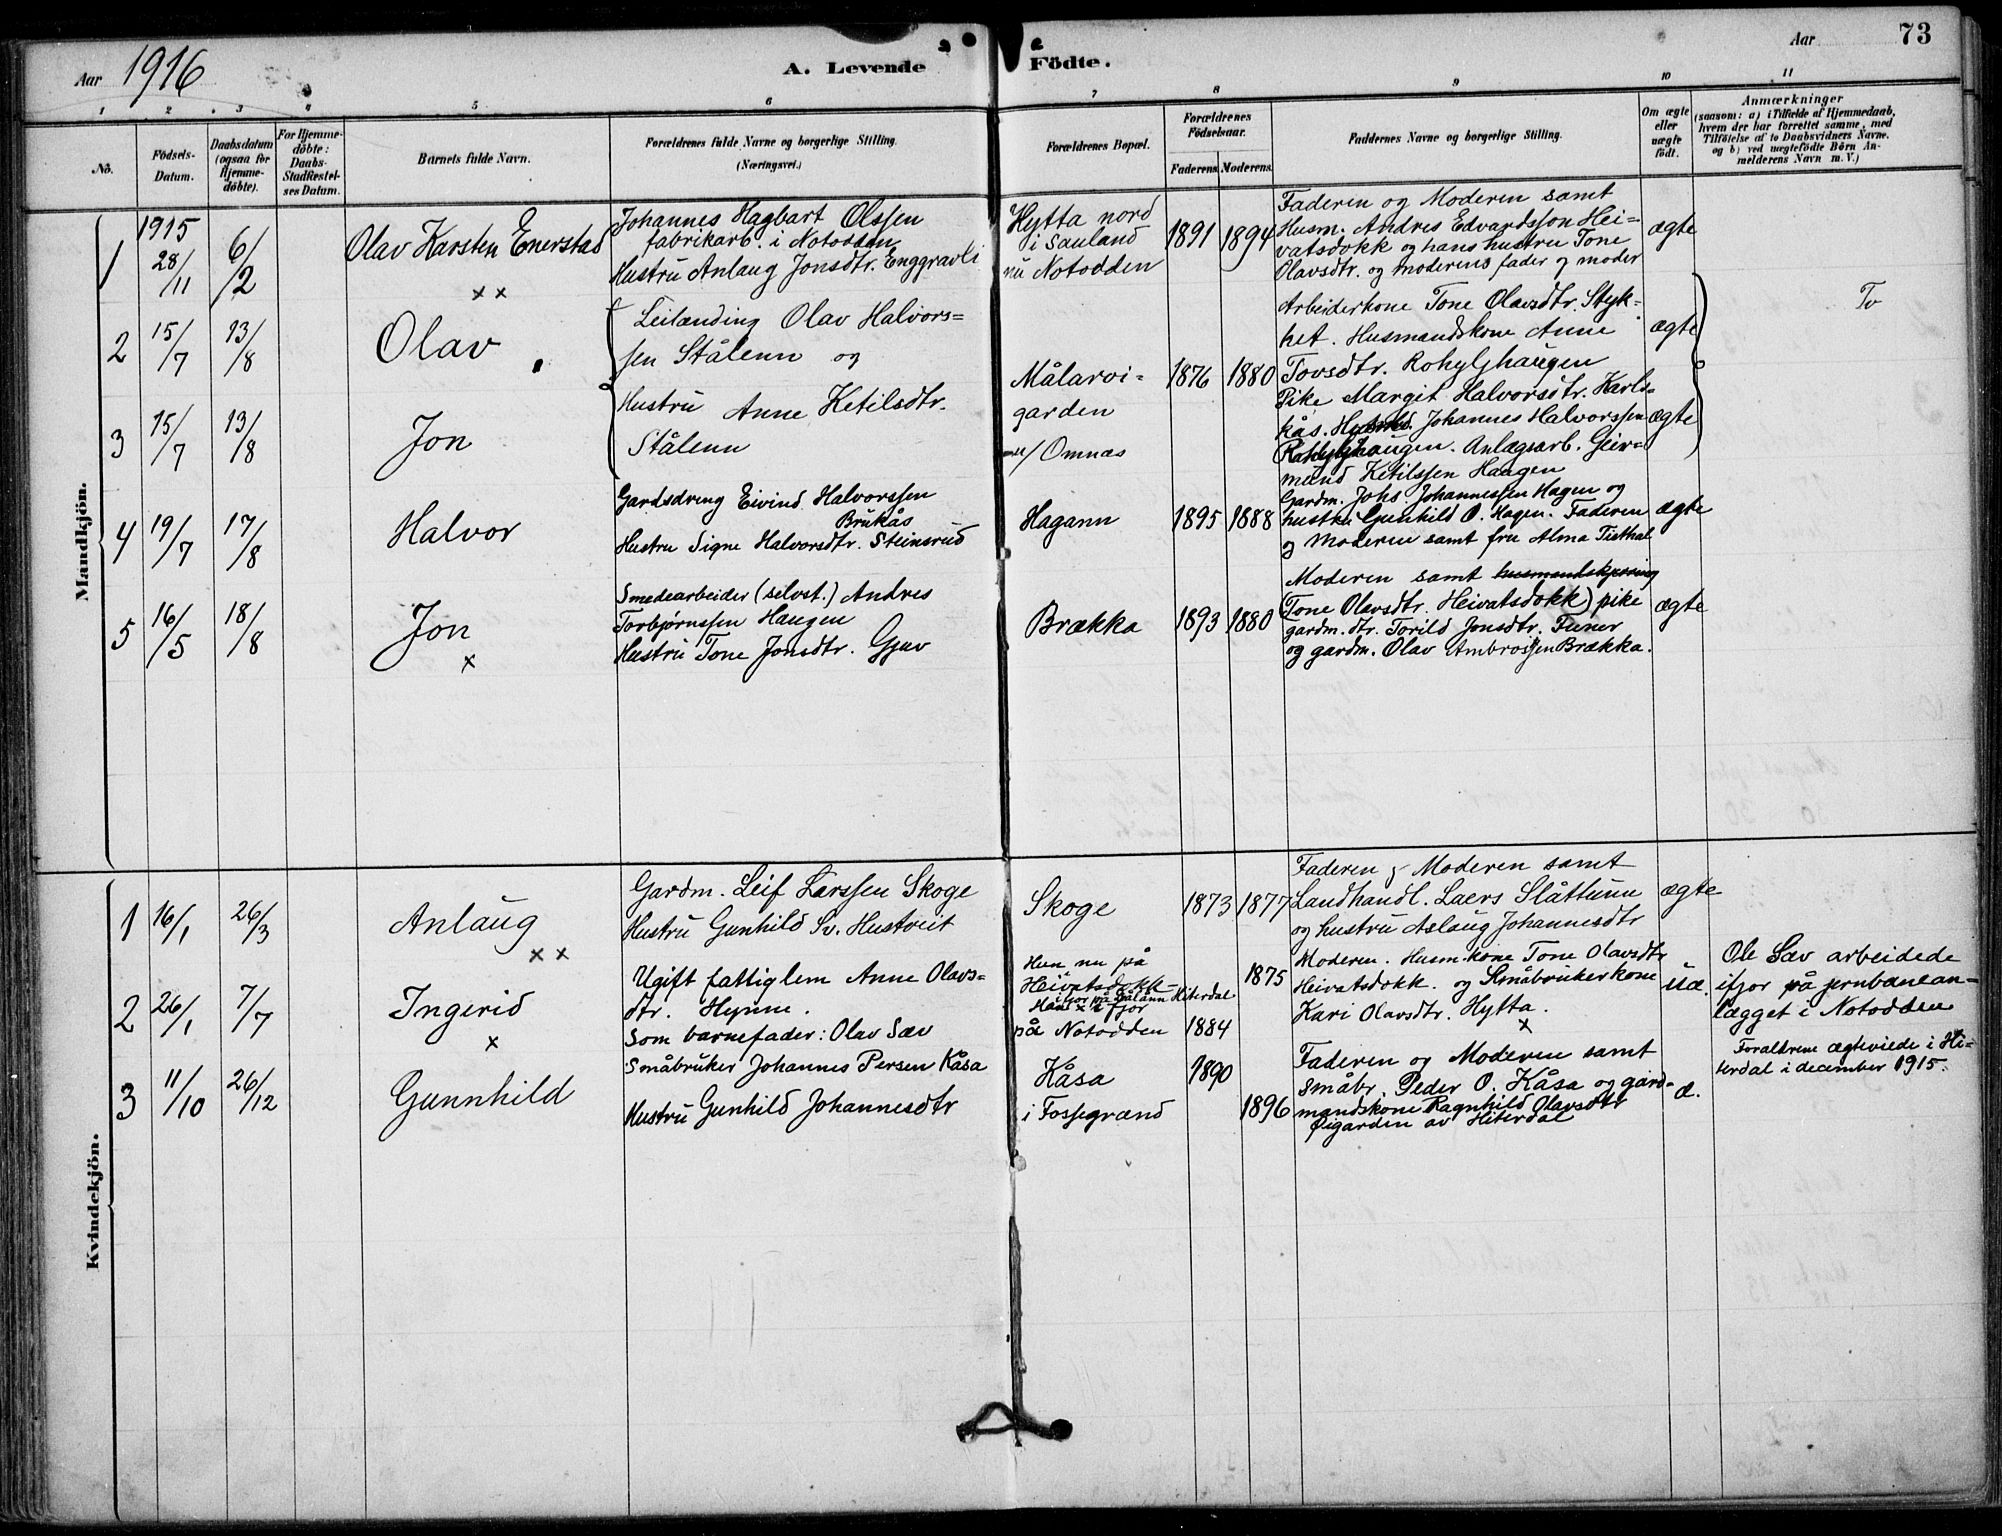 Aar 1916
A. Levende Födte.
Aar
73
1 2 3 4 5 6 7 8 9 10 11
No.
Födsels-Datum.
Daabsdatum (ogsaa for Hjemme-döbte).
For Hjemme-döbte: Daabs-Stadfæstel-ses Datum.
Barnets fulde Navn.
Forældrenes fulde Navne og borgerlige Stilling.
(Næringsvei.)
Forældrenes Bopæl.
Forældrenes Födselsaar.
Faderens Moderens.
Faddernes Navne og borgerlige Stilling.
Om ægte eller uægte födt.
Anmærkninger
(saasom: a) i Tilfælde af Hjemmedaab,
hvem der har forrettet samme, med
Tilföielse af to Daabsvidners Navne.
og b) ved uægtefödte Börn An-
melderens Navn m. V.)
Mandkjön.
1
1915
28/11
6/2
Olav Karsten Enerstad
x x
Johannes Hagbart Olssen
fabrikarb. i Notodden
Hustru Anlaug Jonsdtr. Enggravli
Hytta nord
i Sauland
nu Notodden
1891 1894
Faderen og Moderen samt
Husm. Andres Edvardsson Hei-
vatsdokk og hans hustru Tone
Olavsdtr. og moderens fader og moder
ægte
2 15/7 13/8
Olav
Leilænding Olav Halvors-
sen Stålenn og
3 15/7 13/8
Jon
Hustru Anne Ketilsdtr.
Stålenn
Målarvi-
garden
/Omnæs
1876 1880
Arbeiderkone Tone Olavsdtr. Styk-
ket. Husmandskone Anne
Tovsdtr.
Pike Margit Halvorsdtr. Karls-
kås. Johannes Halvorssen
Anlægsarb. Geir-
mund Ketilssen Haugen
ægte
ægte
Tv
4 19/7 17/8
Halvor
Gardsdreng Eivind Halvorssen
Brukås
Hustru Signe Halvorsdtr. Steinsrud
Hagann
1895 1888
Gardm. Johs. Johannessen Hagen og
hustru Gunhild O. Hagen. Faderen
og Moderen samt fru Alma Tisthal
ægte
5 16/5 18/8
Jon
x
Smedearbeider (selvst.) Andres
Torbjørnssen Haugen
Hustru Tone Jonsdtr. Gjuv
Brækka
1893 1880
Moderen samt
(Tone Olavsdtr. Heivatsdokk) pike
gardm. dtr. Torild Jonsdtr.
og gardm. Olav Ambrossen Brækka.
ægte
Kvindekjön.
1 16/1 26/3
Anlaug
x x
Gardm. Leif Larssen Skoge
Hustru Gunhild Sv. Hustveit
Skoge
1873 1877
Faderen og Moderen samt
Landhandl. Laers Slåttunn
og hustru Aslaug Johannesdtr
ægte
2 26/1 7/7
Ingerid
x
Ugift fattiglem Anne Olavs-
dtr. Hynne.
Som barnefader: Olav Sæv
Hun nu på
Heivatsdokk
Hiterdal
på Notodden
1884
1875
Moderen. Husm. kone Tone Olavsdtr
Heivatsdokk. og Småbrukerkone
Kari Olavsdtr. Hytta.
x
uæ.
Ole Sæv arbeidede
ifjor på jernbanean-
lægget i Notodden
3 11/10 26/12
Gunnhild
Småbruker Johannes Persen Kåsa
Hustru Gunhild Johannesdtr
Kåsa
i Fossegrænd
1890
1896
Faderen og Moderen samt
småbr. Peder O. Kåsa og gard-
mandskone Ragnhild Olavsdtr
Øigarden av Hiterdal
æ.
Forældrene ægteviede i Hi-
terdal i december 1915.